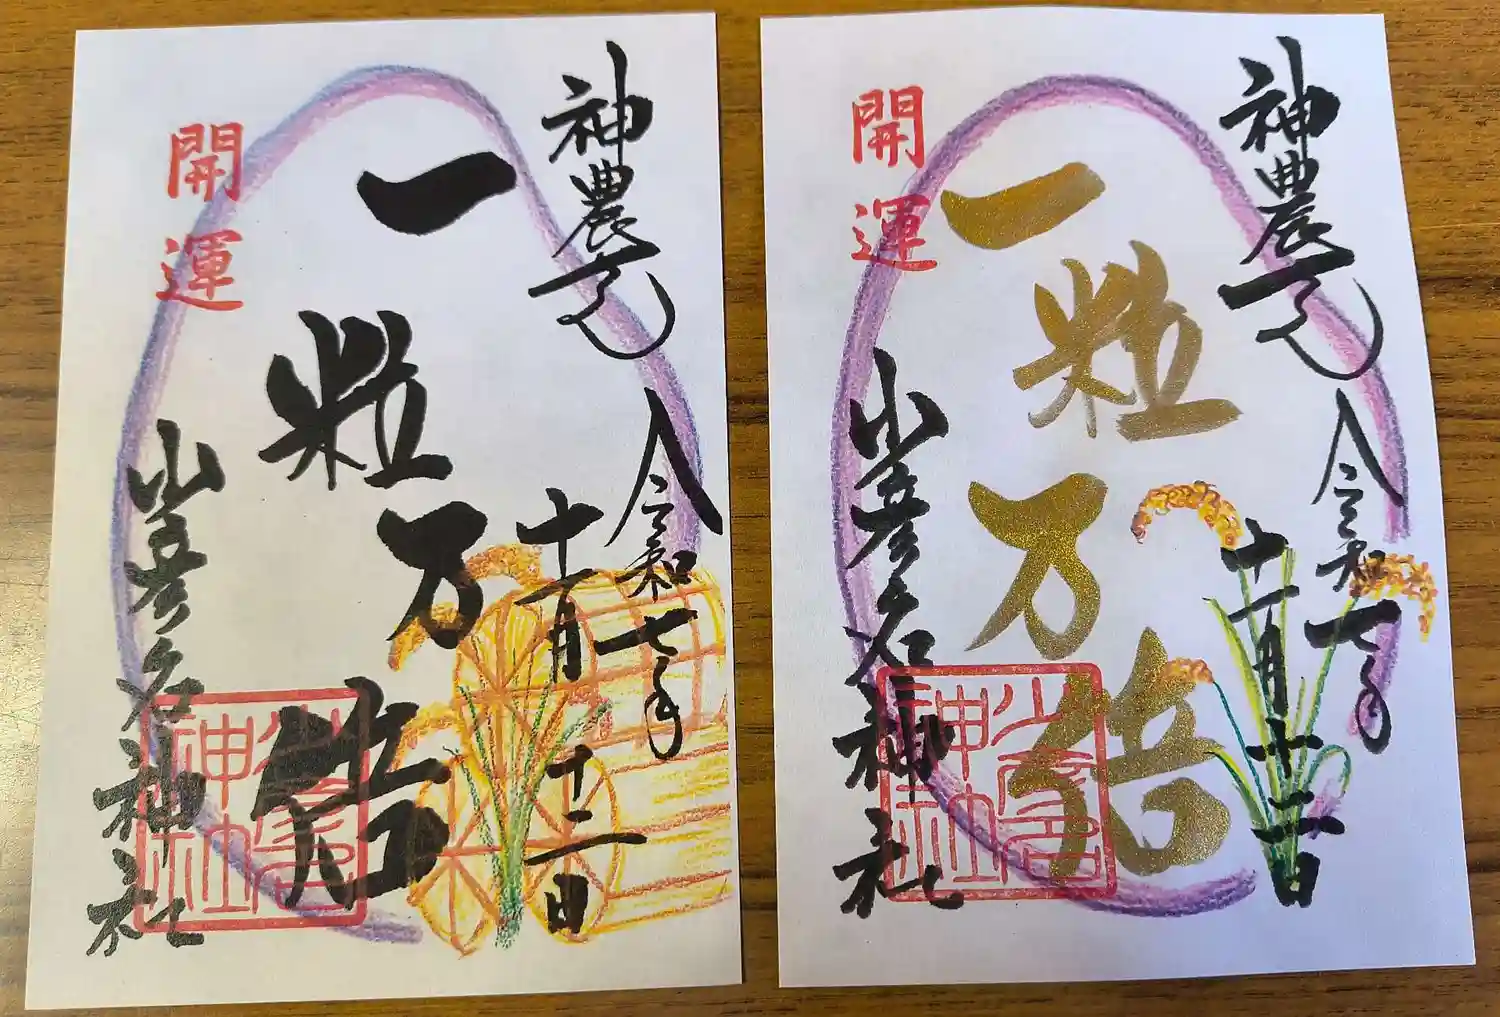 神農
令和七年
十一月十二日
一粒万倍
開運
少彦名神社
少彦名
神社
神農
令和七年
十一月十二日
一粒万倍
開運
少彦名神社
少彦名
神社